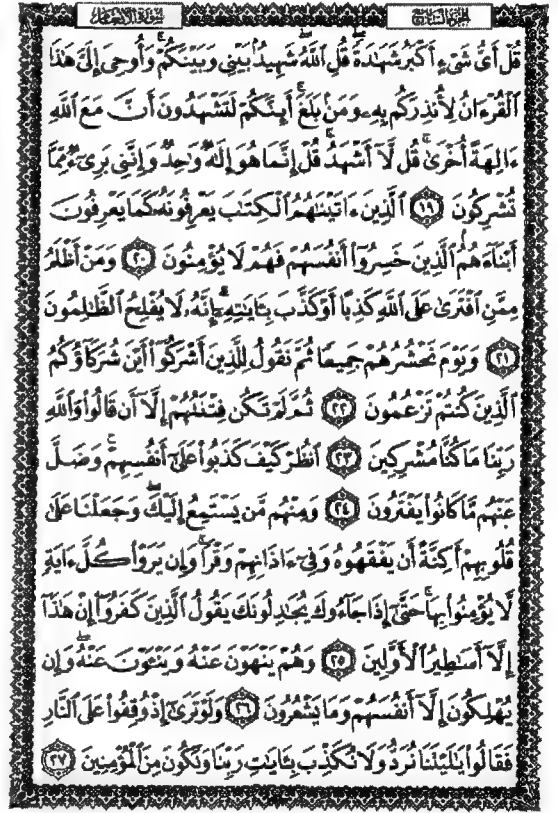 سُورَةُ الأَنْعَامِ
الجُزْءُ السَّابِعُ
قُلْ أَىُّ شَىْءٍ أَكْبَرُ شَهَٰدَةً ۖ قُلِ ٱللَّهُ ۖ شَهِيدٌۢ بَيْنِى وَبَيْنَكُمْ ۚ وَأُوحِىَ إِلَىَّ هَٰذَا
ٱلْقُرْءَانُ لِأُنذِرَكُم بِهِۦ وَمَنۢ بَلَغَ ۚ أَئِنَّكُمْ لَتَشْهَدُونَ أَنَّ مَعَ ٱللَّهِ
ءَالِهَةً أُخْرَىٰ ۚ قُل لَّآ أَشْهَدُ ۚ قُلْ إِنَّمَا هُوَ إِلَٰهٌ وَٰحِدٌ وَإِنَّنِى بَرِىٓءٌ مِّمَّا
تُشْرِكُونَ ١٩ ٱلَّذِينَ ءَاتَيْنَٰهُمُ ٱلْكِتَٰبَ يَعْرِفُونَهُۥ كَمَا يَعْرِفُونَ
أَبْنَآءَهُمُ ۘ ٱلَّذِينَ خَسِرُوٓا۟ أَنفُسَهُمْ فَهُمْ لَا يُؤْمِنُونَ ٢٠ وَمَنْ أَظْلَمُ
مِمَّنِ ٱفْتَرَىٰ عَلَى ٱللَّهِ كَذِبًا أَوْ كَذَّبَ بِـَٔايَٰتِهِۦٓ ۗ إِنَّهُۥ لَا يُفْلِحُ ٱلظَّٰلِمُونَ
٢١ وَيَوْمَ نَحْشُرُهُمْ جَمِيعًا ثُمَّ نَقُولُ لِلَّذِينَ أَشْرَكُوٓا۟ أَيْنَ شُرَكَآؤُكُمُ
ٱلَّذِينَ كُنتُمْ تَزْعُمُونَ ٢٢ ثُمَّ لَمْ تَكُن فِتْنَتُهُمْ إِلَّآ أَن قَالُوا۟ وَٱللَّهِ
رَبِّنَا مَا كُنَّا مُشْرِكِينَ ٢٣ ٱنظُرْ كَيْفَ كَذَبُوا۟ عَلَىٰٓ أَنفُسِهِمْ ۚ وَضَلَّ
عَنْهُم مَّا كَانُوا۟ يَفْتَرُونَ ٢٤ وَمِنْهُم مَّن يَسْتَمِعُ إِلَيْكَ ۖ وَجَعَلْنَا عَلَىٰ
قُلُوبِهِمْ أَكِنَّةً أَن يَفْقَهُوهُ وَفِىٓ ءَاذَانِهِمْ وَقْرًا ۚ وَإِن يَرَوْا۟ كُلَّ ءَايَةٍ
لَّا يُؤْمِنُوا۟ بِهَا ۚ حَتَّىٰٓ إِذَا جَآءُوكَ يُجَٰدِلُونَكَ يَقُولُ ٱلَّذِينَ كَفَرُوٓا۟ إِنْ هَٰذَآ
إِلَّآ أَسَٰطِيرُ ٱلْأَوَّلِينَ ٢٥ وَهُمْ يَنْهَوْنَ عَنْهُ وَيَنْـَٔوْنَ عَنْهُ ۖ وَإِن
يُهْلِكُونَ إِلَّآ أَنفُسَهُمْ وَمَا يَشْعُرُونَ ٢٦ وَلَوْ تَرَىٰٓ إِذْ وُقِفُوا۟ عَلَى ٱلنَّارِ
فَقَالُوا۟ يَٰلَيْتَنَا نُرَدُّ وَلَا نُكَذِّبَ بِـَٔايَٰتِ رَبِّنَا وَنَكُونَ مِنَ ٱلْمُؤْمِنِينَ ٢٧